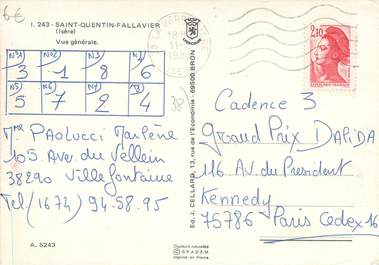 6€
I. 243 - SAINT-QUENTIN-FALLAVIER
(Isère)
Vue générale.
N°1 N°2 N°3 N°4
3 1 8 6
N°5 N°6 N°7 N°8
5 7 2 4
Mme PAOLUCCI Marlène
105. Ave du Vellein
38290 Villefontaine
Tel/(1674) 94.58.95
A. 5243
Ed. J. CELLARD, 13, rue de l'Economie - 69500 BRON
Couleurs naturelles
© S.P.A.D.E.M.
Imprimé en France
38
18
11-
2,10
Cadence 3
Grand Prix DALIDA
116 AV. du President
Kennedy
75786 Paris Cedex 16